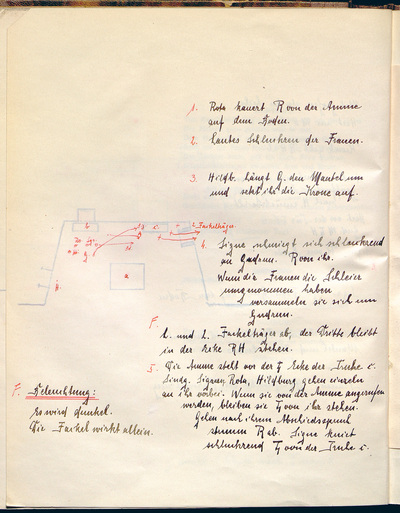 1. Rota kauert R von der Amme
auf dem Boden.
2. Lautes Schluchzen der Frauen.
3. Hildb. hängt G. den Mantel um
und setzt ihr die Krone auf.
2 Fackelträger
4. Signe schmiegt sich schluchzend
an Gudrun. R von ihr.
Wenn die Frauen die Schleier
umgenommen haben
versammeln sie sich um
Gudrun.
F.
1. und 2. Fackelträger ab, der Dritte bleibt
in der Ecke RH stehen.
5. Die Amme steht vor der Ecke der Truhe
Signe, Rota, Hildburg gehen einzeln
an ihr vorbei. Wenn sie von der Amme angerufen
werden, bleiben sie von ihr stehen.
Gehen nach ihrem Abschiedsgruß
stumm R ab. Signe kniet
schluchzend von der Truhe
F. Beleuchtung:
Es wird dunkel.
Die Fackel wirkt allein.